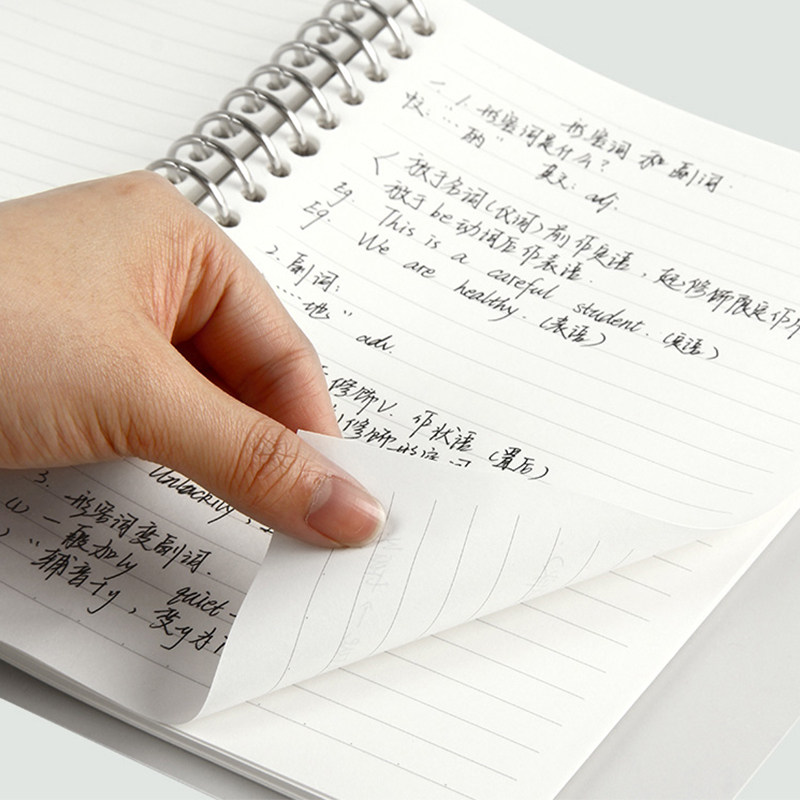 形容词和副词.
一、1. 形容词是什么?
"……的" 真义: adj.
放于名词(代词)前作定语,起修饰限定作用
放于be动词后作表语.
Eg. This is a careful student. (定语)
Eg. We are healthy. (表语)
2. 副词:
"……地" adv.
修饰V. 作状语 (最后)
修饰形容词
Unluckily,
3. 形容词变副词.
(1) 一般加ly quiet-
辅音+y, 变y为i